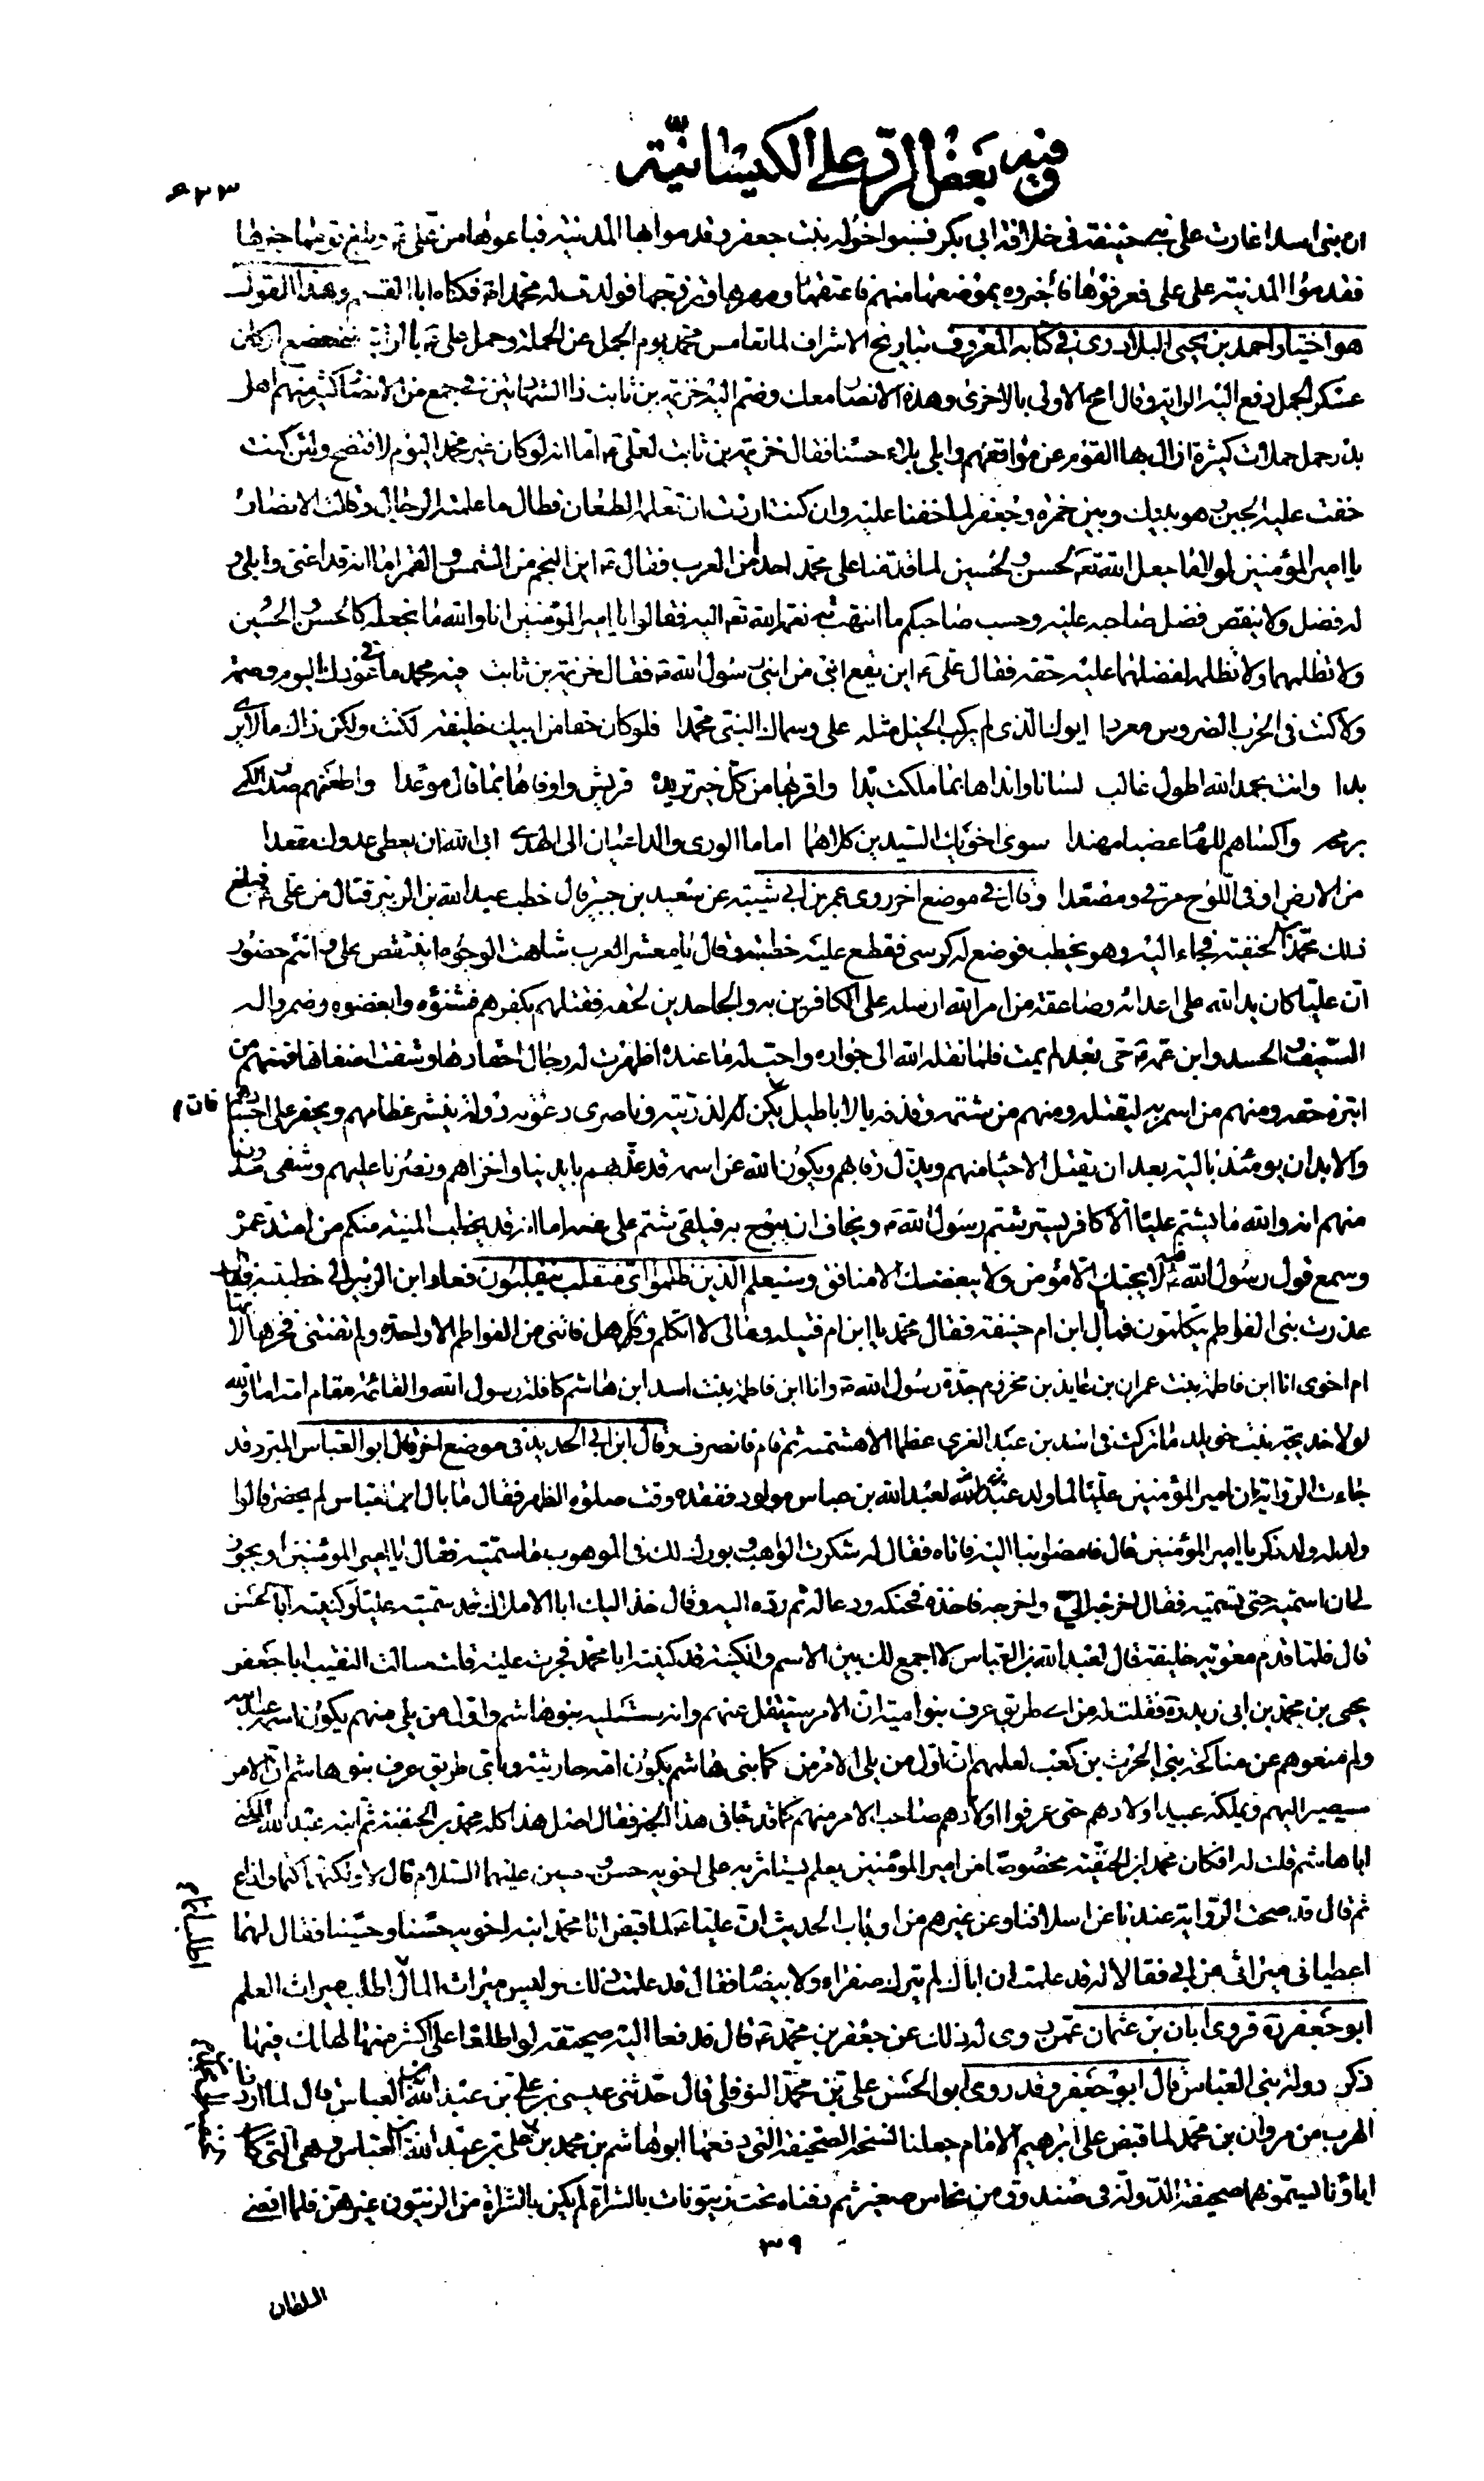 وفيه بعض الرد على الكيسانية
٢٣٣
ان بنى اسد اغارت على بنى حنيفة فى خلافة ابى بكر فسبوا خولة بنت جعفر وقدموا بها المدينة فباعوها من على ع وبلغ قومها خبرها
فقدموا المدينة على على فعرفوها فاخبروه بموضعها منهم فاعتقها ومهرها وتزوجها فولدت له محمدا فكناه ابا القسم وهذا القول
هو اختيار احمد بن يحيى البلاذرى فى كتابه المعروف بتاريخ الاشراف لما تقاعس محمد يوم الجمل عن الحملة وحمل على ع بالراية فضعضع اركان
عسكر الجمل دفع اليه الراية وقال امح الاولى بالاخرى وهذه الانصار معك وضم اليه خزيمة بن ثابت ذا الشهادتين فى جمع من الانصار كثير منهم اهل
بدر حمل حملات كثيرة ازال بها القوم عن مواقعهم وابلى بلاء حسنا فقال خزيمة بن ثابت لعلى ع اما انه لو كان غير محمد اليوم لافتضح ولئن كنت
خفت عليه الجبن وهو بينك وبين حمزة وجعفر لما خفنا عليه وان كنت اردت ان تعلمه الطعان فطال ما علمته الرجال وقالت الانصار
يا امير المؤمنين لولا ما جعل الله تعه لحسن ولحسين لما قدمنا على محمد احدا من العرب فقال ع اين النجم من الشمس والقمر اما انه قد اغنى وابلى و
له فضل ولا ينقص فضل صاحبه عليه وحسب صاحبكم ما انتهت به نعمة الله تعه اليه فقالوا يا امير المؤمنين انا والله ما نجعله كالحسن والحسين
ولا نظلمهما ولا نظلمه لفضلهما عليه حقه فقال على ع اين يقع ابنى من ابنى رسول الله ص فقال خزيمة بن ثابت فيه محمد ما فى عودك اليوم وصمة
ولا كنت فى الحرب الضروس معردا ابوك الذى لم يركب الخيل مثله على وسماك النبى محمدا فلو كان حقا من ابيك خليفة لكنت ولكن ذاك ما لا يرى
بدا وانت بحمد الله اطول غالب لسانا وانداها بما ملكت يدا واقربها من كل خير تريده قريش واوفاها بما قال موعدا واطعنهم صدر الكمى
برمحه واكساهم للهام عضبا مهندا سوى اخويك السيدين كلاهما اماما الورى والداعيان الى الهدى ابى الله ان يعطى عدوك مقعدا
من الارض او فى اللوح مرقى ومصعدا وقال فى موضع اخر روى عمر بن ابى شيبة عن سعيد بن جبير قال خطب عبد الله بن الزبير فنال من على ع فبلغ
ذلك محمد بن الحنفية فجاء اليه وهو يخطب فوضع له كرسى فقطع عليه خطبته وقال يا معشر العرب شاهت الوجوه اينتقص على وانتم حضور
ان عليا كان يد الله على اعدائه وصاعقة من امر الله ارسله على الكافرين به والجاحدين لحقه فقتلهم بكفرهم فشنؤه وابغضوه وضمروا له
السيف والحسد وابن عمه ص حى بعد لم يمت فلما نقله الله الى جواره واحب له ما عنده اظهرت له رجال احقادها وشفت اضغانها فمنهم من
ابتزه حقه ومنهم من اسمر به ليقتله ومنهم من شتمه وقذفه بالاباطيل فان يكن لذريته وناصرى دعوته دولة ينشر عظامهم ويحفر على اجسادهم
والابدان يومئذ بالية بعد ان يقتل الاحياء منهم ويذل رقابهم ويكون الله عز اسمه قد عذبهم بايدينا واخزاهم ونصرنا عليهم وشفى صدورنا
منهم انه والله ما يشتم عليا الا كافر يستر شتم رسول الله ص ويخاف ان يبوح به فيلقى شتم على عنه اما انه قد يخطب المنية منكم من امتد عمره
وسمع قول رسول الله ص فيه لا يحبك الا مؤمن ولا يبغضك الا منافق وسيعلم الذين ظلموا اى منقلب ينقلبون فعاد ابن الزبير الى خطبته فقال
عذرت بنى الفواطم يتكلمون فما بال ابن ام حنيفة فقال محمد يا ابن ام قتيلة ومالى لا اتكلم وهل فاتنى من الفواطم الا واحدة ولم تفتنى فخرها لانها
ام اخوى انا ابن فاطمة بنت عمران بن عايذ بن مخزوم جدة رسول الله ص وانا ابن فاطمة بنت اسد ابن هاشم كافلة رسول الله والقائمة مقام امه اما والله
لولا خديجة بنت خويلد ما تركت فى اسد بن عبد العزى عظما الا هشمته ثم قام فانصرف وقال ابن ابى الحديد فى موضع اخر قال ابو العباس المبرد قد
جاءت الرواية ان امير المؤمنين عليا لما ولد لعبد الله بن عباس مولود ففقده وقت صلوة الظهر فقال ما بال ابن عباس لم يحضر قالوا
ولد له ولد ذكر يا امير المؤمنين قال فامضوا بنا اليه فاتاه فقال له شكرت الواهب وبورك لك فى الموهوب ما سميته فقال يا امير المؤمنين او يجوز
لى ان اسميه حتى تسميه فقال اخرجه الى واخرجه فاخذه فحنكه ودعا له ثم رده اليه وقال خذ اليك ابا الاملاك قد سميته عليا وكنيته ابا الحسن
قال فلما قدم معوية خليفة قال لعبد الله بن العباس لا اجمع لك بين الاسم والكنية قد كنيته ابا محمد فجرت عليه قلت سالت النقيب ابا جعفر
يحيى بن محمد بن ابى زيد ره فقلت له من اى طريق عرف بنو امية ان الامر سينتقل عنهم وانه سيليه بنو هاشم واول من يلى منهم يكون اسمه عبد الله
ولم منعوهم عن مناكحة بنى الحرث بن كعب لعلمهم ان اول من يلى الامر من بنى هاشم يكون امه حارثية وباى طريق عرف بنو هاشم ان الامر
سيصير اليهم ويملكه عبيد اولادهم حتى عرفوا اولادهم صاحب الامر منهم كما قد جاء فى هذا الخبر فقال اصل هذا كله محمد بن الحنفية ثم ابنه عبد الله المكنى
ابا هاشم قلت له افكان محمد ابن الحنفية مخصوصا من امير المؤمنين بعلم يستاثر به على اخويه حسن وحسين عليهما السلام قال لا ولكنهما كتما واذاع
ثم قال قد صحت الرواية عندنا عن اسلافنا وعن غيرهم من ارباب الحديث ان عليا ع لما قبض اتا محمد ابنه اخويه حسنا وحسينا فقال لهما
اعطيانى ميراثى من ابى فقالا له قد علمت ان اباك لم يترك صفراء ولا بيضاء فقال قد علمت ذلك وليس ميراث المال اطلب ميراث العلم
ابو جعفر ره فروى ابان بن عثمان عمن روى له ذلك عن جعفر بن محمد ع قال فدفعا اليه صحيفة لو اطلعا على اكثر منها لهلك فيها
ذكر دولة بنى العباس قال ابو جعفر وقد روى ابو الحسن على بن محمد النوفلى قال حدثنى عيسى بن على بن عبد الله بن العباس قال لما اردنا
الهرب من مروان بن محمد لما قبض على ابرهيم الامام جعلنا نسخة الصحيفة التى دفعها ابو هاشم بن محمد بن على بن عبد الله بن العباس وهى التى كان
اباؤنا يسمونها صحيفة الدولة فى صندوق من نحاس صغير ثم دفناه تحت زيتونات بالشراة لم يكن بالشراة من الزيتون غيرهن فلما افضى
٣٩
السلطان